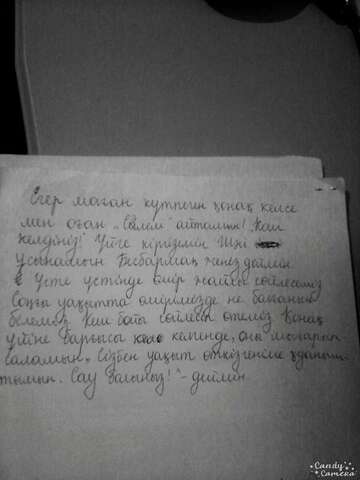 Егер маған күтпеген қонақ келсе
мен оған „Сәлем" айтамын! Қош
келдіңіз! Үйге кіріңіз
ұсынамын Бесбармақ жеңіз деймін.
Үсте үстінде өмір жайлы сөйлесеміз
Соңғы уақытта өмірімізде не болғанын
білеміз. Кеш бойы сөйлесіп отырамыз Қонақ
үйіне барғысы келгенде, оны шығарып
саламын. Сізбен уақыт өткізгеніме қуанып-
тымын. Сау болыңыз!" - деймін
Candy
Camera